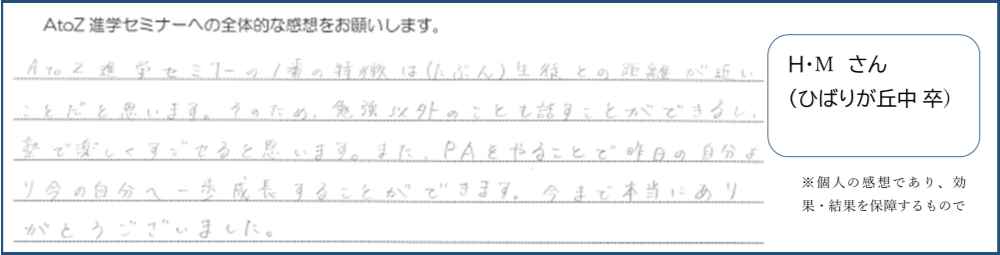 AtoZ 進学セミナーへの全体的な感想をお願いします。
AtoZ 進学セミナーの1番の特徴は(たぶん)生徒との距離が近い
ことだと思います。そのため、勉強以外のことも話すことができるし、
塾で楽しくすごせると思います。また、PAをやることで昨日の自分よ
り今の自分へ一歩成長することができます。今まで本当にあり
がとうございました。
H・M さん
(ひばりが丘中 卒)
※個人の感想であり、効
果・結果を保障するもので